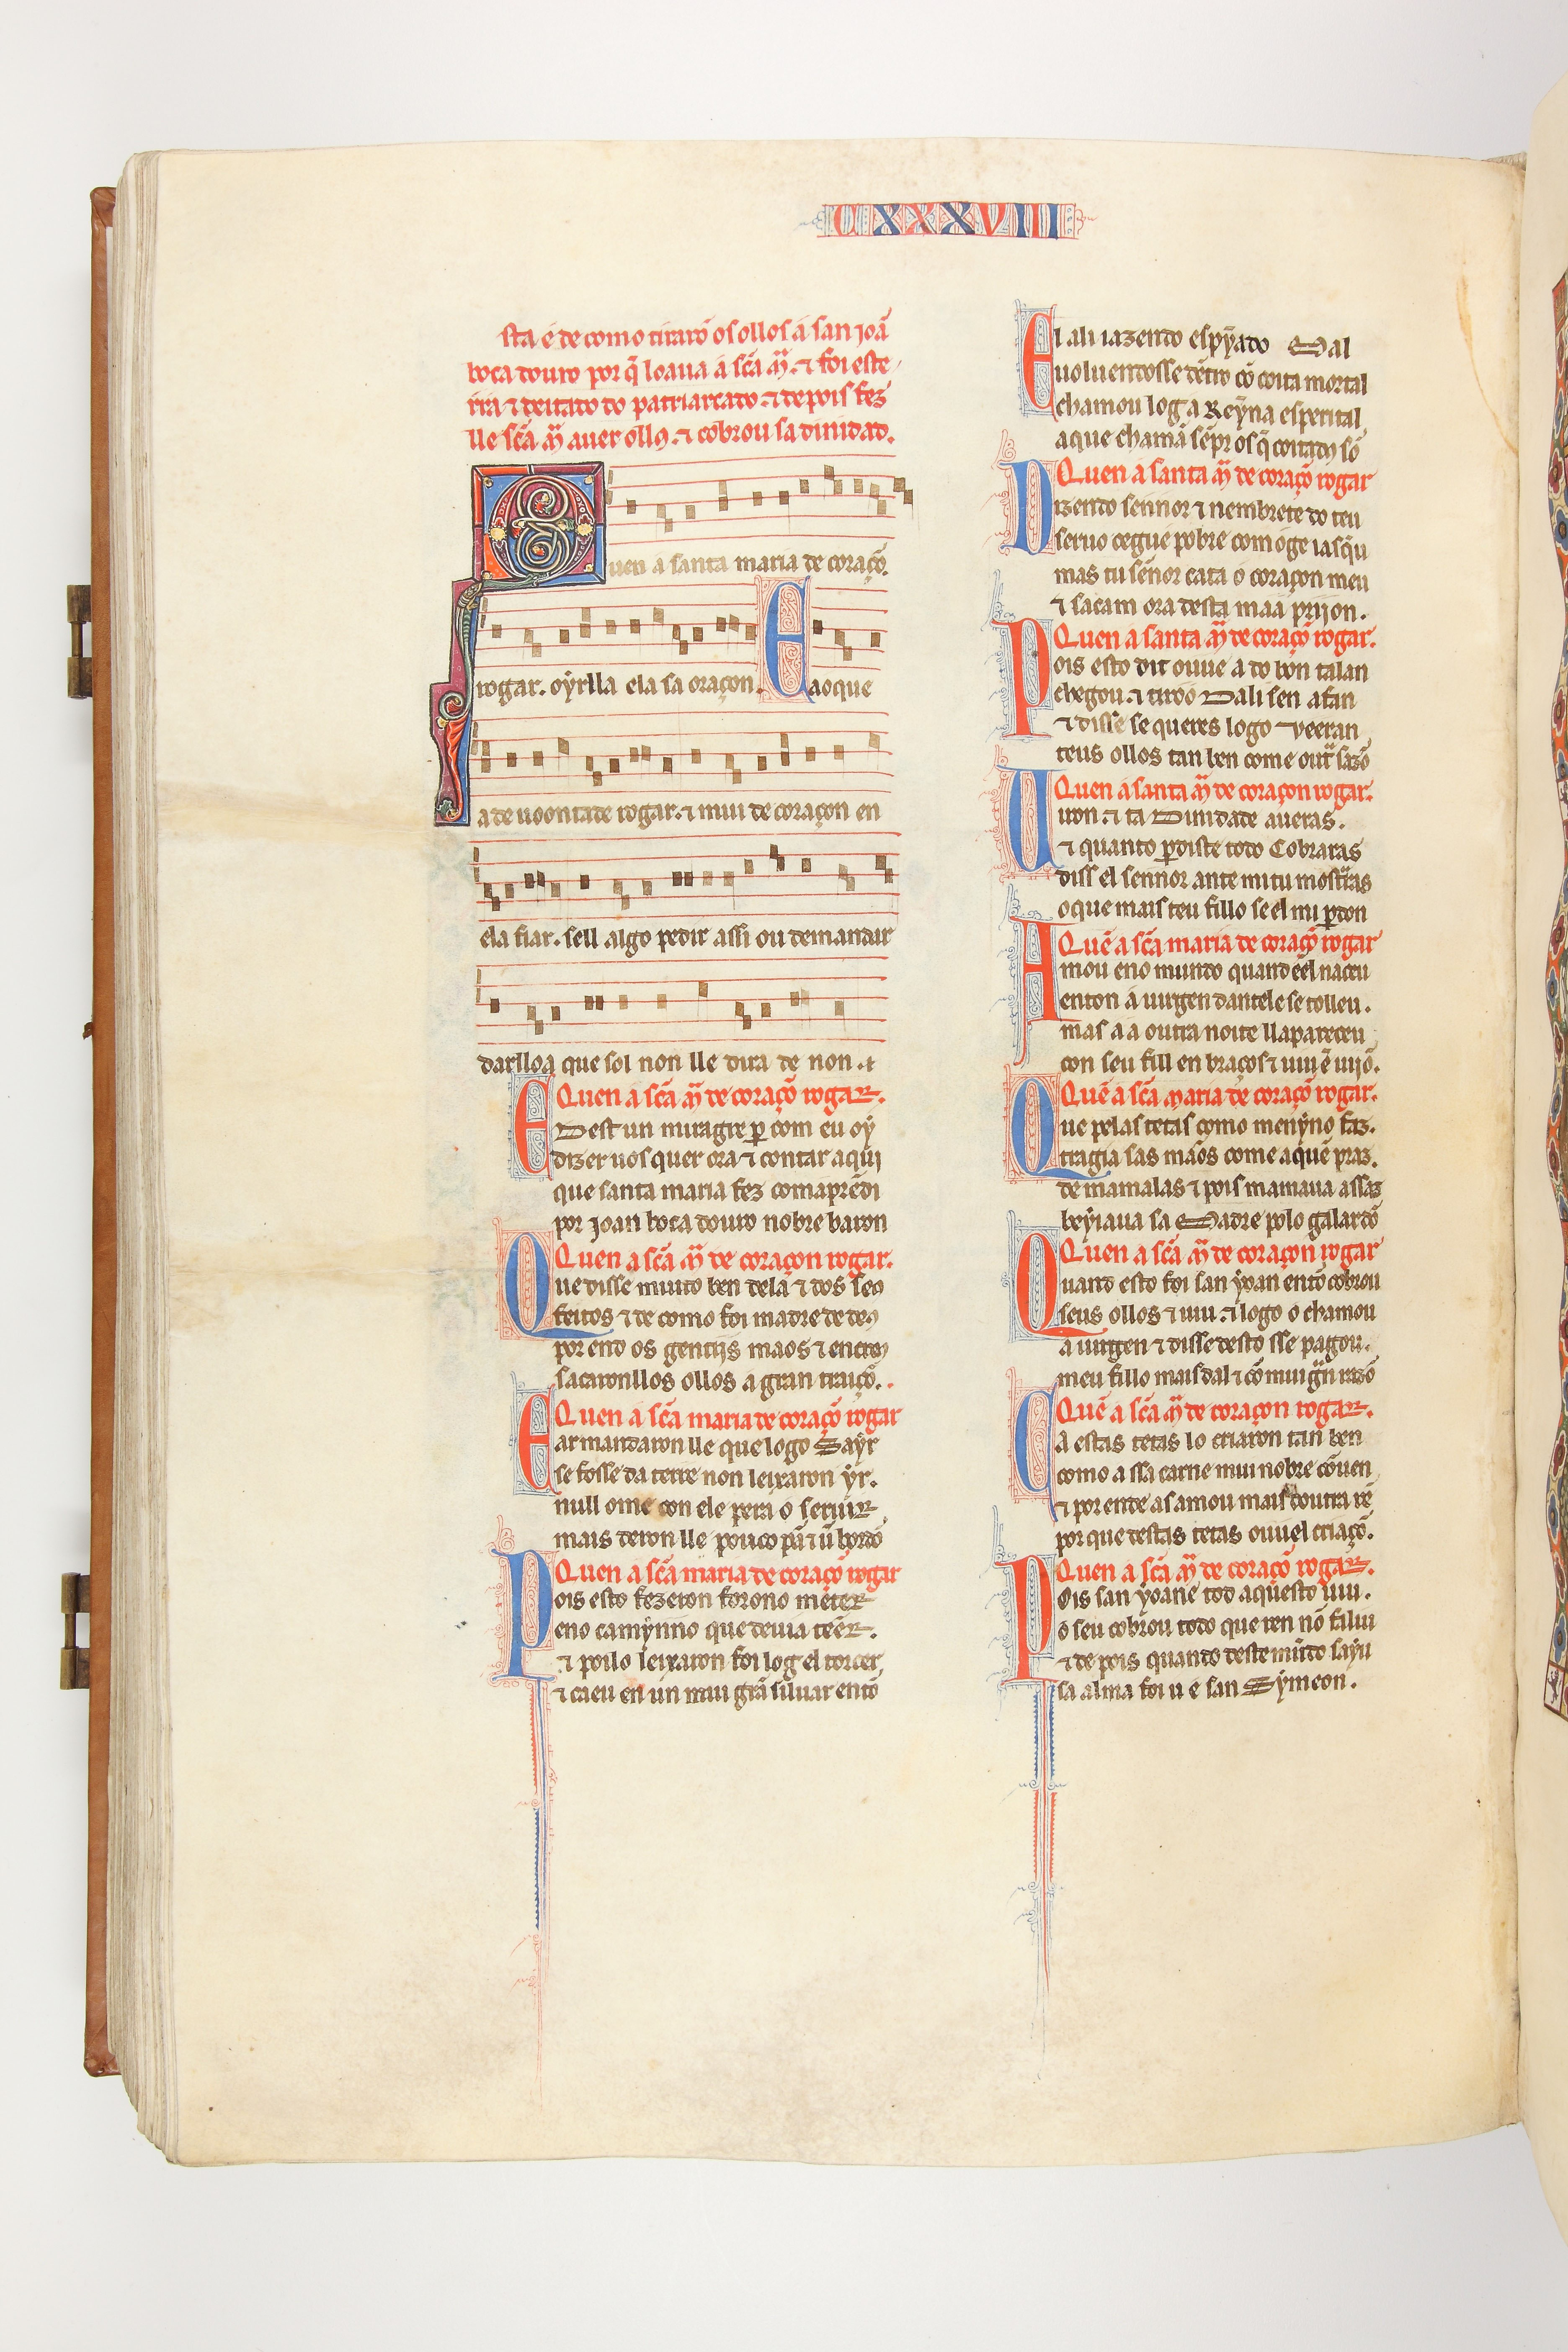 CXXXVIII
sta é de como tirarõ os ollos a san joã
boca douro por q̃ loaua a sc̃a mã. ⁊ foi este
⁊ deitado do patriarcado. ⁊ depois fez
lle sc̃a mã auer ollꝯ. ⁊ cobrou sa dinidad.
Quen a santa maria de coraçõ.
rogar. oyrlla ela sa oraçon. E aoque
a de uoontade rogar. ⁊ mui de coraçon en
ela fiar. sell algo pedir assi ou demandar
darlloa que sol non lle dira de non. ⁊
Quen a sc̃a mã de coraçõ rogar.
E Dest un miragre ꝑ com eu oý
dizer uos quer ora ⁊ contar aqui
que santa maria fez comaprẽdi
por Joan boca douro nobre baron
Quen a sc̃a mã de coraçon rogar.
Que disse muito ben dela ⁊ dos seꝯ
feitos ⁊ de como foi madre de deꝯ
por end os gentijs maos ⁊ encreꝯ
sacaronllos ollos a gran traiçõ.
Quen a sc̃a maria de coraçõ rogar
E ar mandaron lle que logo Sayr
se fosse da terre non leixaron yr.
null ome con ele pera o seruir
mais deron lle pouco pã ⁊ ũ bordõ
Quen a sc̃a maria de coraçõ rogar
Pois esto fezeron forono meter
eno camỹno que deuia teẽr.
⁊ poilo leixaron foi log el torcer
⁊ caeu en un mui grã siluar entõ
El ali iazendo espỹado Dal
uoluendosse dẽtro cõ coita mortal
chamou log a Reỹna esperital
aque chamã sẽpr os q̃ coitadꝯ sõ
Quen a santa mã de coraçõ rogar
Dizendo sennor ⁊ nembrete do teu
seruo cegue pobre com oge iasq̃u
mas tu sẽnor cata o coraçon meu
⁊ sacam ora desta maa prijon.
Quen a santa mã de coraçõ rogar.
Pois esto dit ouue a do bon talan
chegou. ⁊ tiróo Dali sen afan
⁊ disse se queres logo veeran
teus ollos tan ben come outͣ sazõ
Quen a santa mã de coraçon rogar.
Uiron. ⁊ ta Dinidade aueras.
⁊ quanto ꝑdiste todo Cobraras
diss el sennor ante mi tu mostͣras
oque mais teu fillo se el mi ꝑdon
Quẽ a sc̃a maria de coraçõ rogar
Amou eno mundo quand éel naceu
enton a uirgen dantele se tolleu.
mas a a outra noite llapareceu
con seu fill en braços ⁊ uiu ẽ uijõ.
Quẽ a sc̃a maria de coraçõ rogar.
Que pelas tetas como menỹno faz.
tragia sas mãos come aquẽ praz.
de mamalas ⁊ pois mamaua assaz
beyiaua sa Madre polo galardõ
Quen a sc̃a mã de coraçon rogar
Quand esto foi san ẏoan entõ cobrou
seus ollos ⁊ uiu. ⁊ logo o chamou
a uirgen ⁊ disse desto sse pagou.
meu fillo mais dal ⁊ cõ mui gͣn razõ
Quẽ a sc̃a mã de coraçon rogar.
Ca estas tetas lo criaron tan ben
como a ssa carne mui nobre cõuen
⁊ por ende as amou mais doutra rẽ
por que destas tetas ouuel criaçõ.
Quen a sc̃a mã de coraçõ rogar.
Pois san ẏoane tod aquesto uiu.
o seu cobrou todo que ren nõ faliu
⁊ de pois quando deste mũdo sayu
sa alma foi u é san Sỹmeon.